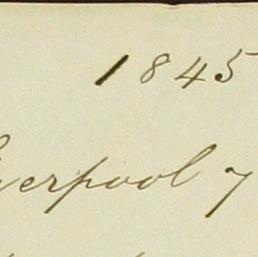 1845
iverpool 7